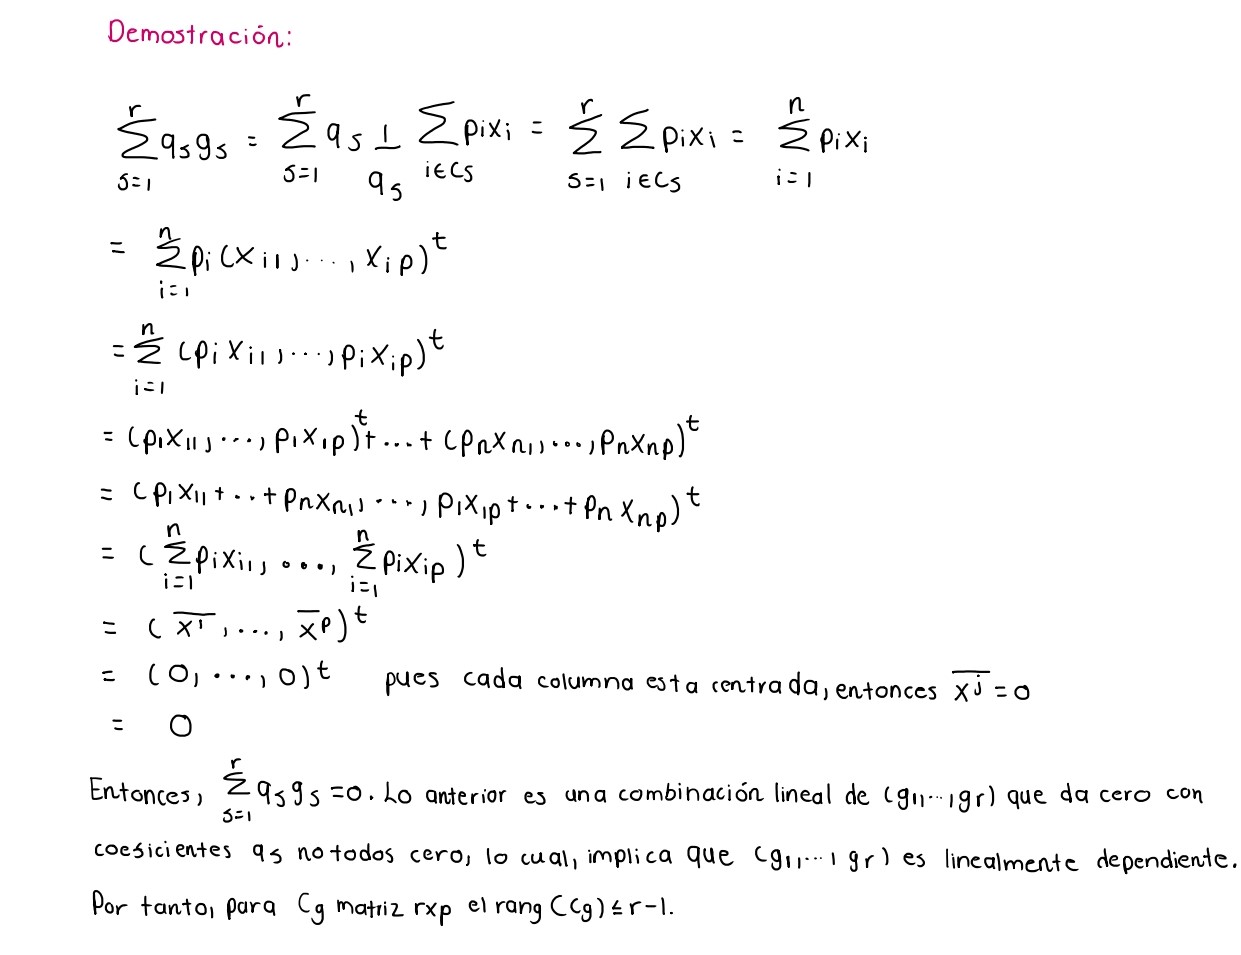 Demostración:
∑_{s=1}^{r} q_s g_s = ∑_{s=1}^{r} q_s 1/q_s ∑_{i∈C_s} p_i x_i = ∑_{s=1}^{r} ∑_{i∈C_s} p_i x_i = ∑_{i=1}^{n} p_i x_i
= ∑_{i=1}^{n} p_i (x_{i1}, ..., x_{ip})^t
= ∑_{i=1}^{n} (p_i x_{i1}, ..., p_i x_{ip})^t
= (p_1 x_{11}, ..., p_1 x_{1p})^t + ... + (p_n x_{n1}, ..., p_n x_{np})^t
= (p_1 x_{11} + .. + p_n x_{n1}, ..., p_1 x_{1p} + ... + p_n x_{np})^t
= (∑_{i=1}^{n} p_i x_{i1}, ..., ∑_{i=1}^{n} p_i x_{ip})^t
= (x̅^1, ..., x̅^p)^t
= (0, ..., 0)^t pues cada columna esta centrada, entonces x̅^j = 0
= 0
Entonces, ∑_{s=1}^{r} q_s g_s = 0. Lo anterior es una combinación lineal de (g_1, ..., g_r) que da cero con
coeficientes q_s no todos cero, lo cual, implica que (g_1, ..., g_r) es linealmente dependiente.
Por tanto, para C_g matriz rxp el rang (C_g) ≤ r-1.